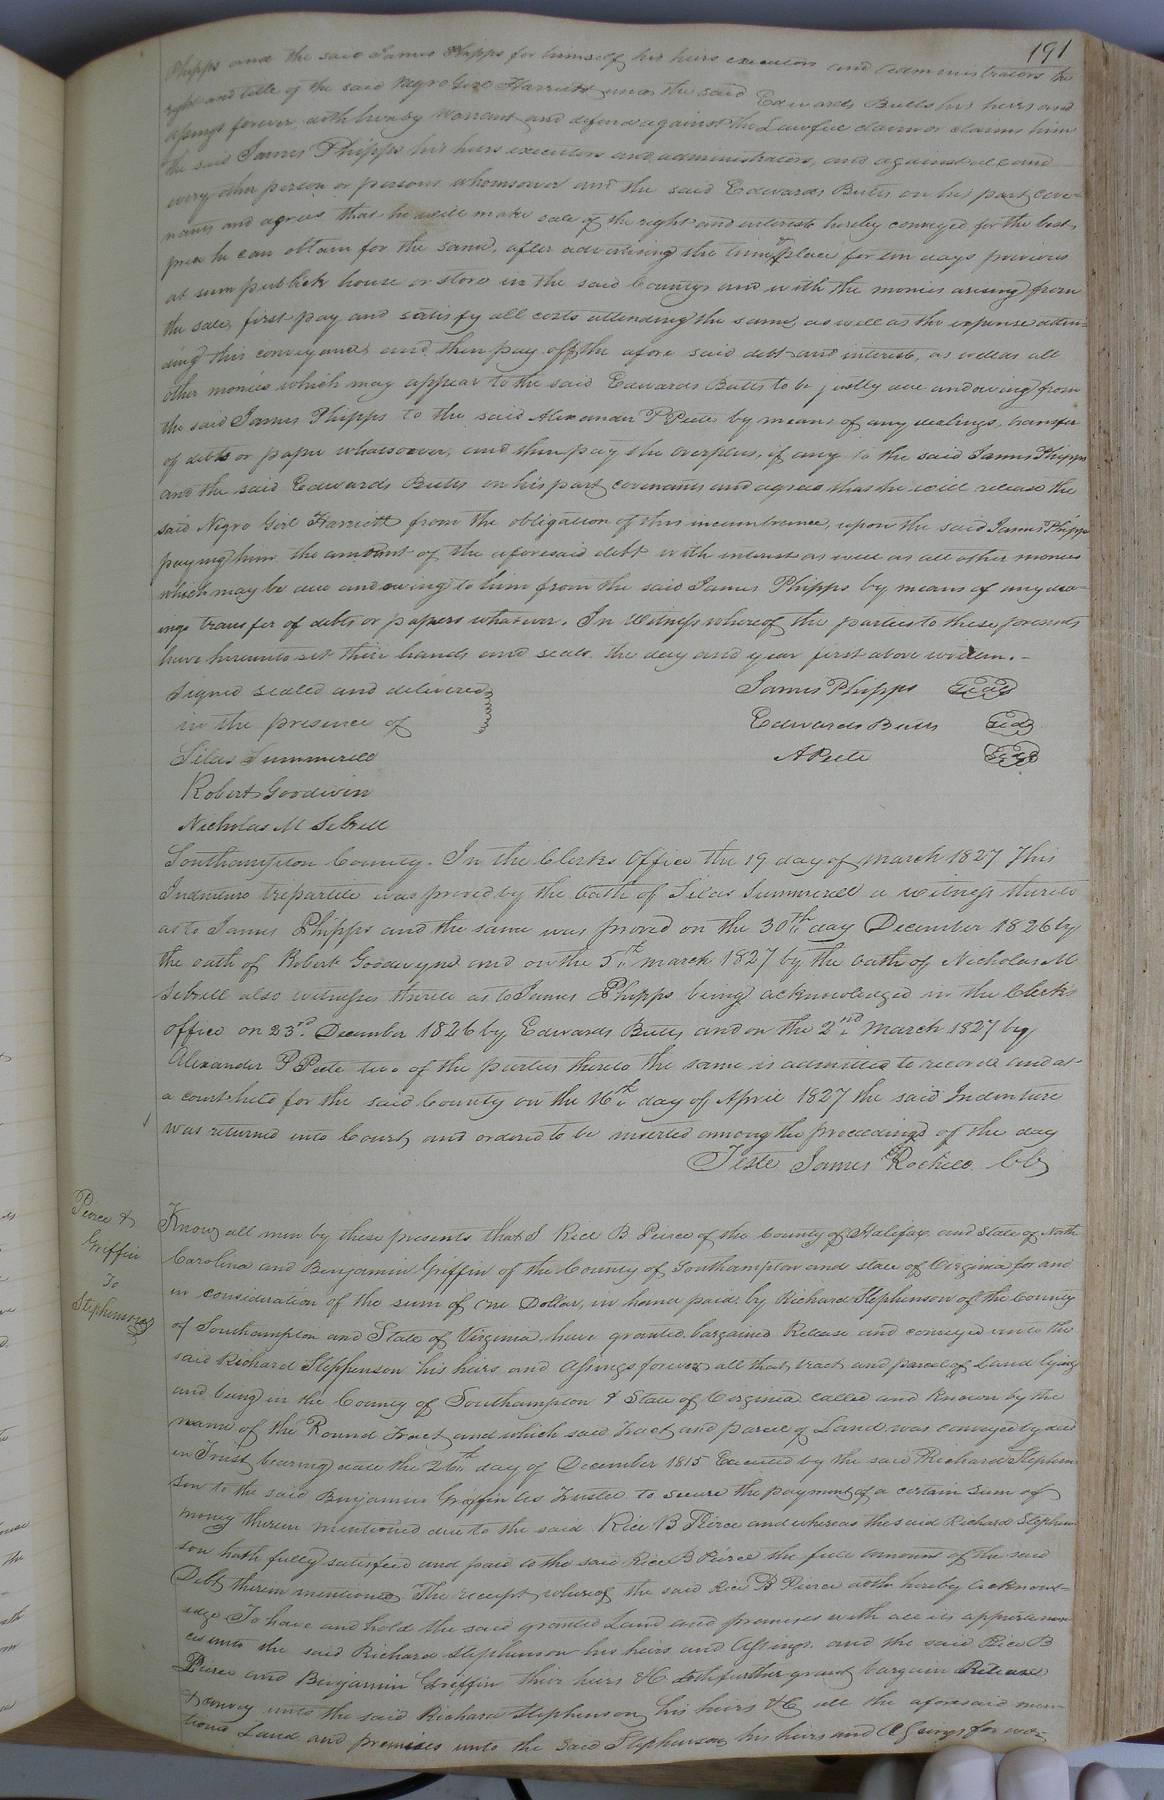 191
Phipps and the said James Phipps for himself his heirs executors and administrators the
right and title of the said Negro Girl Harriett unto the said Edwards Butts his heirs and
assings forever doth hereby warrant and defend against the Lawful claim or claims him
the said James Phipps his heirs executors and administrators, and against all and
every other person or persons whomsoever and the said Edwards Butts on his part cove-
nants and agrees that he will make sale of the right and interest hereby conveyed for the best
price he can obtain for the same, after advertising the time & place for ten days previous
at sum publick house or store in the said County and with the monies arising from
the sale, first pay and satisfy all costs attending the same as well as the expense atten-
ding this conveyance and then pay off the afore said debt and interest, as well as all
other monies which may appear to the said Edwards Butts to be justly due and owing from
the said James Phipps to the said Alexander P Peete by means of any dealings, transfer
of debts or paper whatsoever, and then pay the overplus, if any to the said James Phipps
and the said Edwards Butts on his part covenants and agrees that he will release the
said Negro Girl Harriett from the obligation of this incumbrance, upon the said James Phipps
paying him the amount of the aforesaid debt with interest as well as all other monies
which may be due and owing to him from the said James Phipps by means of any dea-
ings transfer of debts or papers whatever. In Witness whereof the parties to these presents
have hereunto set their hands and seals the day and year first above written.-
Signed sealed and delivered James Phipps Seal
in the presence of Edwards Butts Seal
Silas Summerell A Peete Seal
Robert Goodwin
Nicholas M Sebrell
Southampton County. In the Clerks Office the 19 day of march 1827 This
Indenture trepartite was proved by the oath of Silas Summerell a witness thereto
as to James Phipps and the same was proved on the 30th day December 1826 by
the oath of Robert Goodwynd and on the 5th march 1827 by the oath of Nicholas M
Sebrell also witnesses thereto as to James Phipps being acknowledged in the Clerks
office on 23rd December 1826 by Edwards Butts and on the 2nd March 1827 by
Alexander P Peete two of the parties thereto the same is admitted to record and at
a court held for the said County on the 16th day of April 1827 the said Indenture
was returned into Court, and ordered to be inserted among the proceedings of the day
Teste James Rochelle CC
Pierce &
Griffin
To
Stephenson
Know all men by these presents that I Rice B Pierce of the County of Halifax and State of North
Carolina and Benjamin Griffin of the County of Southampton and state of Virginia for and
in consideration of the sum of One Dollar, in hand paid by Richard Stephenson of the County
of Southampton and State of Virginia have granted bargained Release and conveyed unto the
said Richard Stephenson his heirs and Assings forever all that tract and parcel of Land lying
and being in the County of Southampton & State of Virginia called and Known by the
name of the Round Tract and which said Tract and parcel of Land was conveyed by deed
in Trust bearing date the 26th day of December 1815 Executed by the said Richard Stephen
son to the said Benjamin Griffin as Trustee to secure the payment of a certain sum of
money therein mentioned due to the said Rice B Pierce and whereas the said Richard Stephen
son hath fully satisfied and paid to the said Rice B Pierce the full amount of the said
Debt therein mentioned The receipt whereof the said Rice B Pierce doth hereby acknowl-
edge To have and hold the said granted Land and premises with all its appurtenan
ces unto the said Richard Stephenson his heirs and Assings. and the said Rice B
Pierce and Benjamin Griffin their heirs &C doth further grant bargain Release
& convey unto the said Richard Stephenson his heirs &C all the aforesaid men-
tioned Land and premises unto the said Stephenson his heirs and Assings for ever